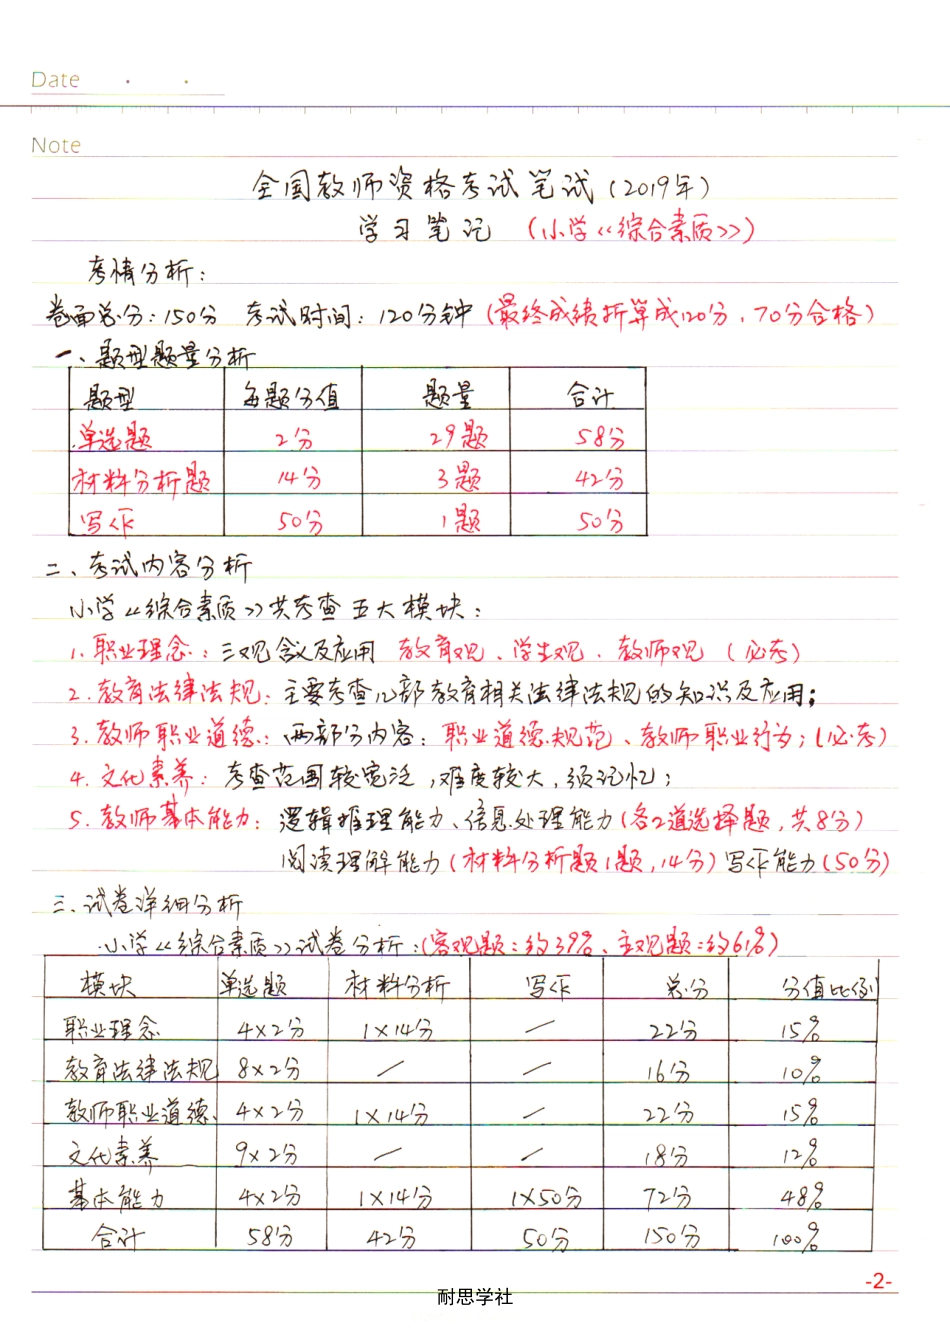 Date
Note
全国教师资格考试笔试(2019年)
学习笔记 (小学《综合素质》)
考情分析:
卷面总分:150分 考试时间:120分钟(最终成绩折算成120分,70分合格)
一、题型题量分析
题型 每题分值 题量 合计
单选题 2分 29题 58分
材料分析题 14分 3题 42分
写作 50分 1题 50分
二、考试内容分析
小学《综合素质》共考查五大模块:
1.职业理念:三观含义及应用 教育观、学生观、教师观 (必考)
2.教育法律法规:主要考查几部教育相关法律法规的知识及应用;
3.教师职业道德:两部分内容:职业道德规范、教师职业行为;(必考)
4.文化素养:考查范围较宽泛,难度较大,须记忆;
5.教师基本能力:逻辑推理能力、信息处理能力(各2道选择题,共8分)
阅读理解能力(材料分析题1题,14分)写作能力(50分)
三、试卷详细分析
小学《综合素质》试卷分析:(客观题:约39%、主观题:约61%)
模块 单选题 材料分析 写作 总分 分值比例
职业理念 4×2分 1×14分 — 22分 15%
教育法律法规 8×2分 — — 16分 10%
教师职业道德 4×2分 1×14分 — 22分 15%
文化素养 9×2分 — — 18分 12%
基本能力 4×2分 1×14分 1×50分 72分 48%
合计 58分 42分 50分 150分 100%
-2-
耐思学社